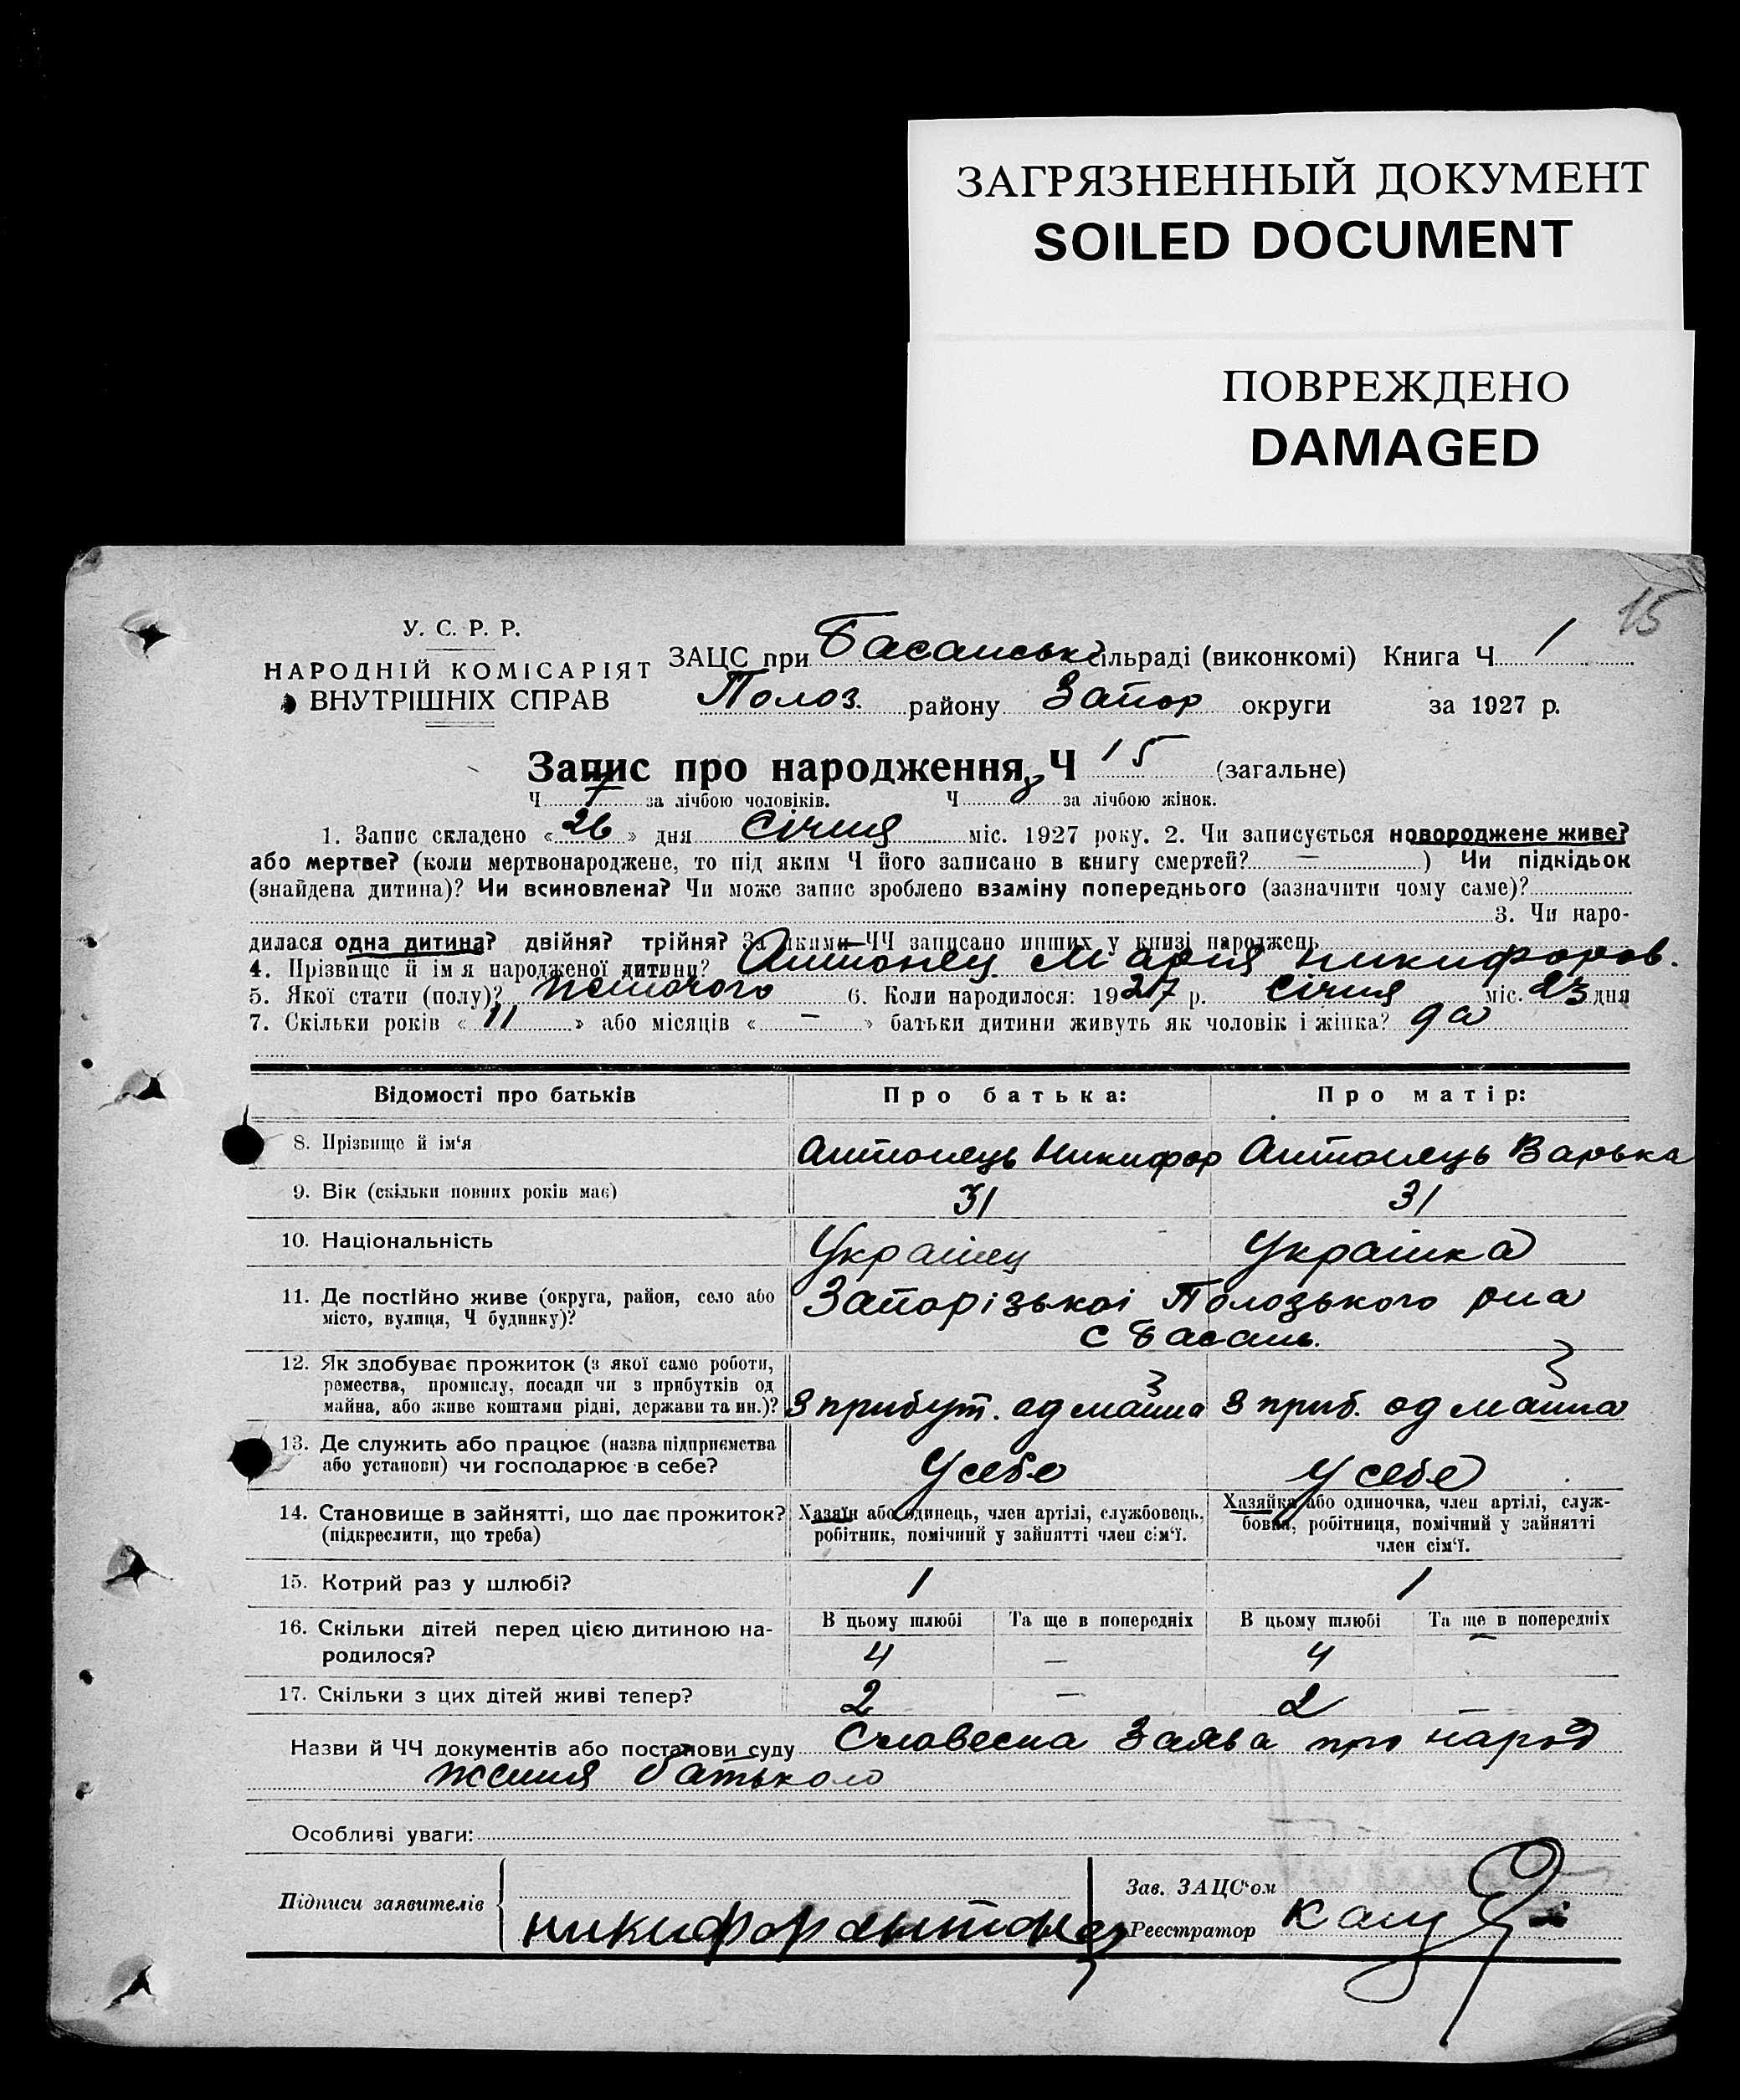 ЗАГРЯЗНЕННЫЙ ДОКУМЕНТ
SOILED DOCUMENT
ПОВРЕЖДЕНО
DAMAGED
15
У. С. Р. Р.
НАРОДНІЙ КОМІСАРІЯТ
ВНУТРІШНІХ СПРАВ
ЗАЦС при Басанські сільраді (виконкомі) Книга Ч 1
Полоз. району Запор округи за 1927 р.
Запис про народження Ч 15 (загальне)
Ч 7 за лічбою чоловіків. Ч 8 за лічбою жінок.
1. Запис складено «26» дня Січня міс. 1927 року. 2. Чи записується новороджене живе?
або мертве? (коли мертвонароджене, то під яким Ч його записано в книгу смертей? — ) Чи підкідьок
(знайдена дитина)? Чи всиновлена? Чи може запис зроблено взаміну попереднього (зазначити чому саме)?
3. Чи наро-
дилася одна дитина? двійня? трійня? За якими ЧЧ записано инших у книзі народжень
4. Прізвище й ім я народженої дитини? Антонец Мария Никифоров.
5. Якої стати (полу)? Жіночого 6. Коли народилося: 1927 р. Січня міс. 23 дня
7. Скільки років «11» або місяців « — » батьки дитини живуть як чоловік і жінка?
Відомості про батьків Про батька: Про матір:
8. Прізвище й ім‘я Антонець Никифор Антонець Варька
9. Вік (скільки повних років має) 31 31
10. Національність Українец Українка
11. Де постійно живе (округа, район, село або
місто, вулиця, Ч будинку)? Запорізькоі Полозького рна
с Басань.
12. Як здобуває прожиток (з якої само роботи,
ремества, промислу, посади чи з прибутків од
майна, або живе коштами рідні, держави та ин.)? З прибут. од майна З приб. од майна
13. Де служить або працює (назва підприємства
або установи) чи господарює в себе? У себе У себе
14. Становище в зайнятті, що дає прожиток?
(підкреслити, що треба)
Хазяїн або одинець, член артілі, службовець,
робітник, помічний у зайнятті член сім‘ї.
Хазяйка або одиночка, член артілі, служ-
бовка, робітниця, помічний у зайнятті
член сім‘ї.
15. Котрий раз у шлюбі? 1 1
16. Скільки дітей перед цією дитиною на-
родилося?
В цьому шлюбі Та ще в попередніх В цьому шлюбі Та ще в попередніх
4 — 4 —
17. Скільки з цих дітей живі тепер? 2 — 2 —
Назви й ЧЧ документів або постанови суду Словесна Заява про народ
ження батьком
Особливі уваги:
Підписи заявителів
Никифор Антонец
Зав. ЗАЦС‘ом
Реєстратор